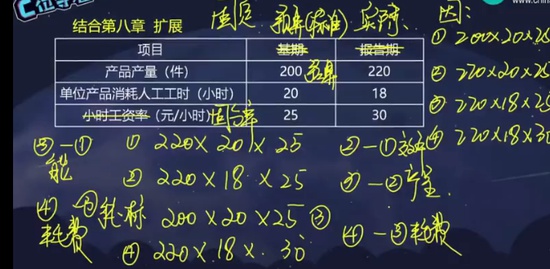 位
www.chin
结合第八章 扩展
固定 预算(标准) 实际 因:
项目 基期 报告期
产品产量（件） 200 预算 220
单位产品消耗人工工时（小时） 20 18
小时工资率（元/小时） 固合率 25 30
① 200×20×25
② 220×20×25
③ 220×18×25
④ 220×18×30
③-① 能
① 220×20×25
②-① 效率
② 220×18×25
③-② 产量
④-③ 耗费
耗标 200×20×25 ③
④ 220×18×30
④-③ 耗费